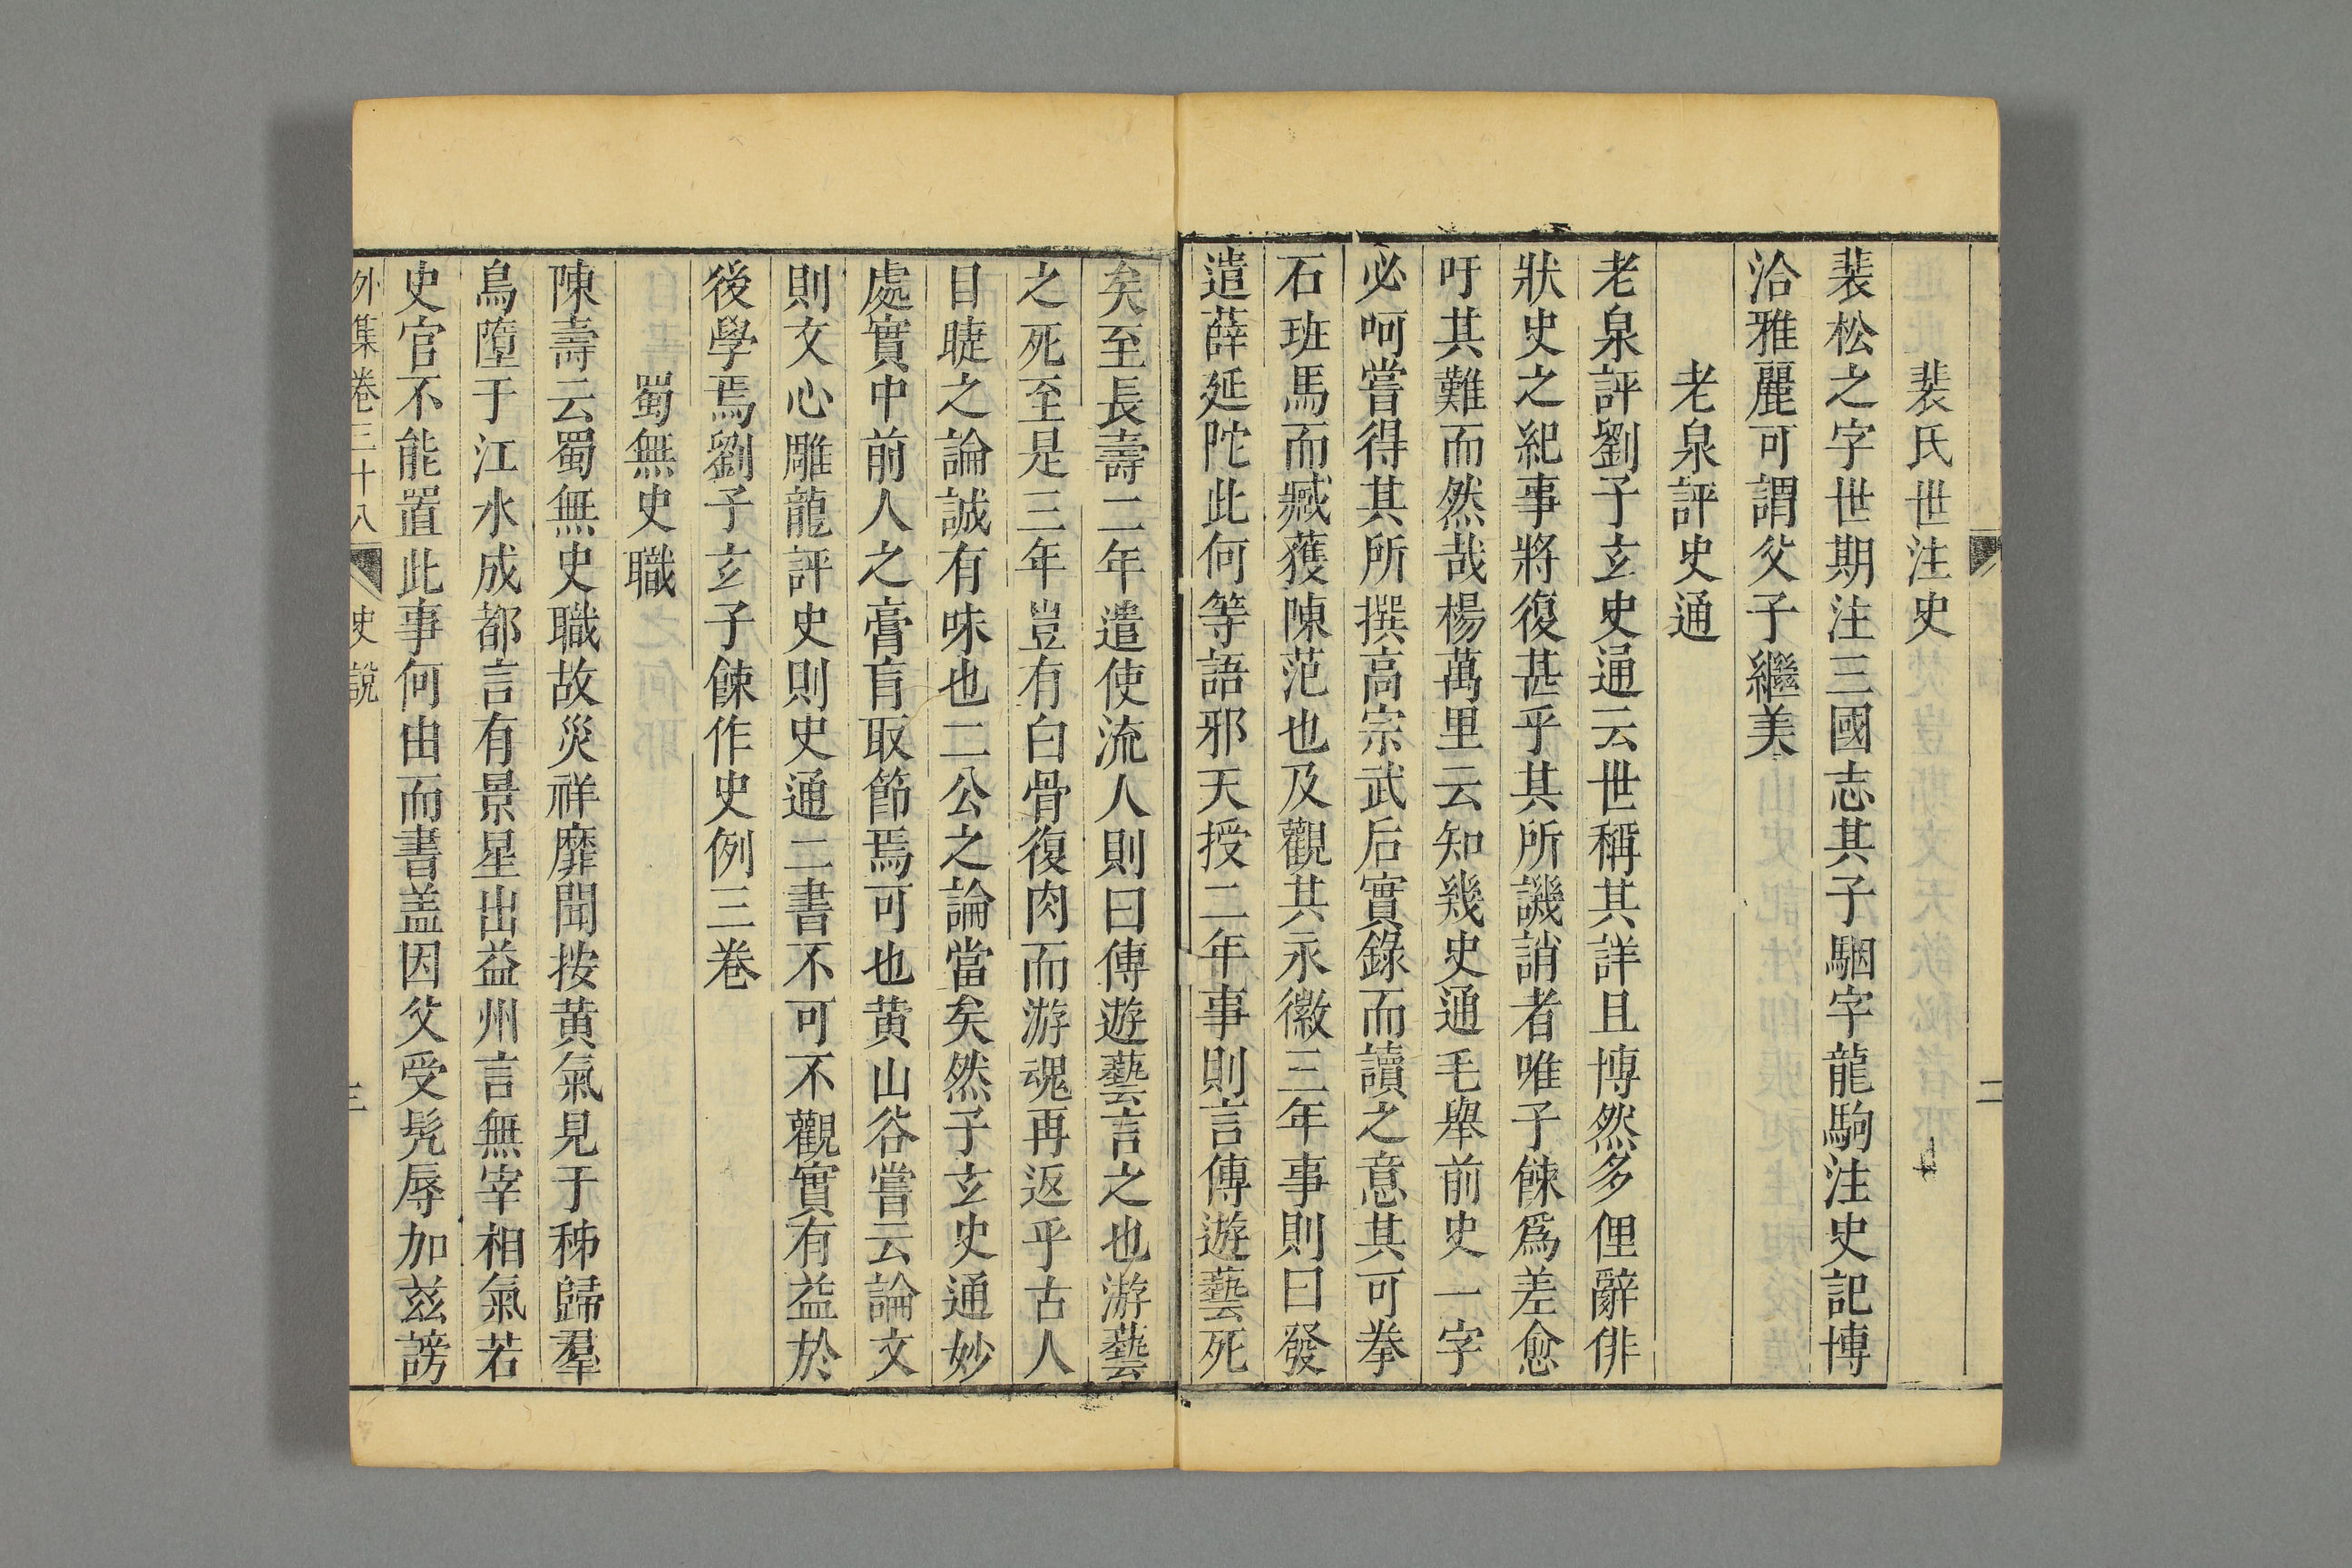 裴氏世注史
裴松之字世期注三國志其子駰字龍駒注史記博
洽雅麗可謂父子繼美
老泉評史通
老泉評劉子玄史通云世稱其詳且博然多俚辭俳
狀史之紀事將復甚乎其所譏誚者唯子餗爲差愈
吁其難而然哉楊萬里云知幾史通毛舉前史一字
必呵嘗得其所撰高宗武后實錄而讀之意其可拳
石班馬而臧獲陳范也及觀其永徽三年事則曰發
遣薛延陀此何等語邪天授二年事則言傅遊藝死
矣至長壽二年遣使流人則曰傅遊藝言之也游藝
之死至是三年豈有白骨復肉而游魂再返乎古人
目睫之論誠有味也二公之論當矣然子玄史通妙
處實中前人之膏肓取節焉可也黄山谷嘗云論文
則文心雕龍評史則史通二書不可不觀實有益於
後學焉劉子玄子餗作史例三巻
蜀無史職
陳壽云蜀無史職故災祥靡聞按黄氣見于秭歸羣
鳥墮于江水成都言有景星出益州言無宰相氣若
史官不能置此事何由而書盖因父受髠辱加兹謗
外集巻三十八
史說
三
二